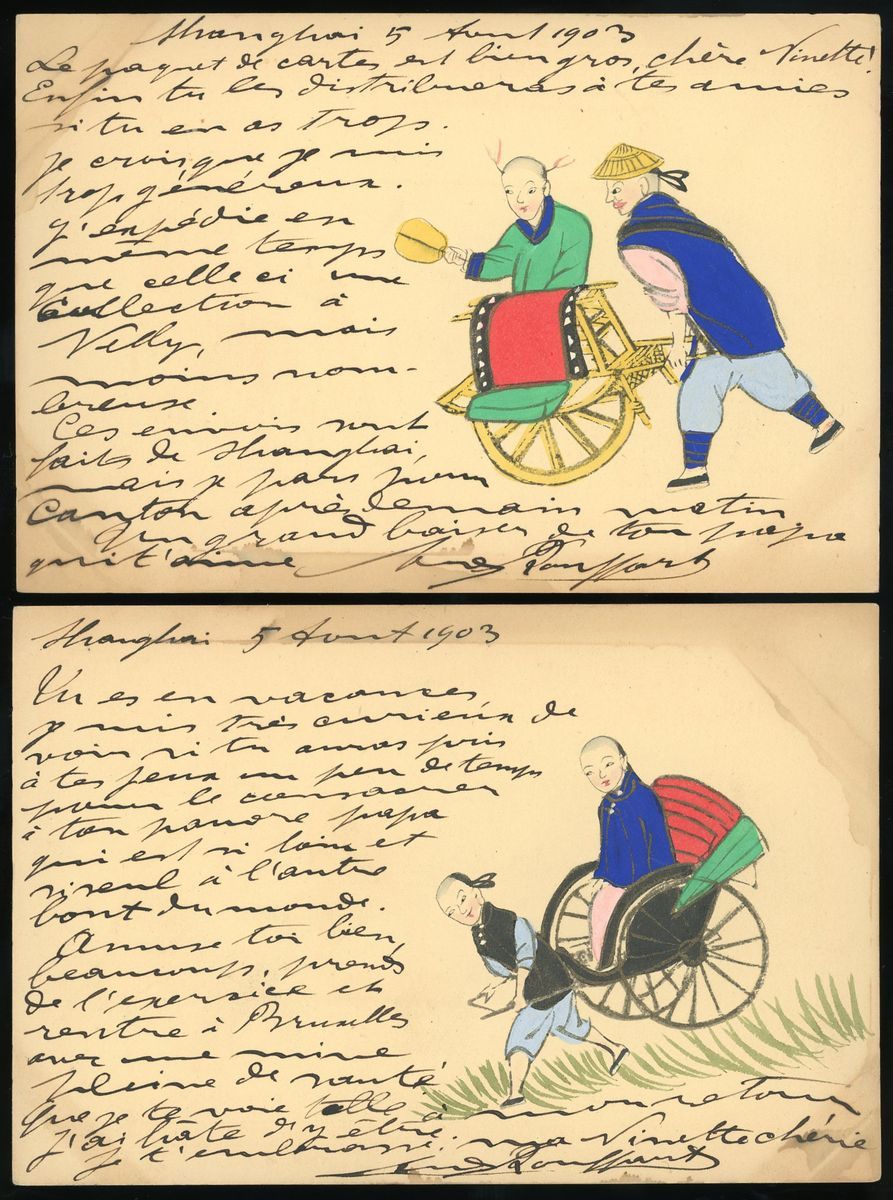 Shanghai 5 Aout 1903
Le paquet de cartes est bien gros, chère Ninette!
Enfin tu les distribueras à tes amies
si tu en as trop.
je crois que je suis
trop généreux.
J'expédie en
même temps
que celle ci une
collection à
Nelly, mais
moins nom-
breuse
Ces envois sont
faits de Shanghai,
mais je pars pour
Canton après demain matin
Un grand baiser de ton papa
qui t'aime
Shanghai 5 Aout 1903
Tu es en vacances
je suis très curieux de
voir si tu auras pris
à tes jeux un peu de temps
pour le consacrer
à ton pauvre papa
qui est si loin et
si seul à l'autre
bout du monde.
Amuse toi bien,
beaucoup, prends
de l'exercice et
rentre à Bruxelles
avec une mine
pleine de santé
que je te voie telle à mon retour
j'ai hâte d'y être
je t'embrasse, ma Ninette chérie